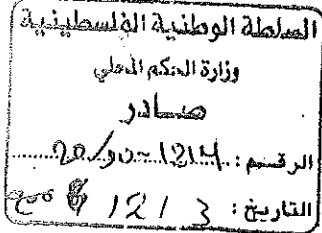 السلطة الوطنية الفلسطينية
وزارة الحكم المحلي
صادر
الرقم :
التاريخ : 3 / 12 /